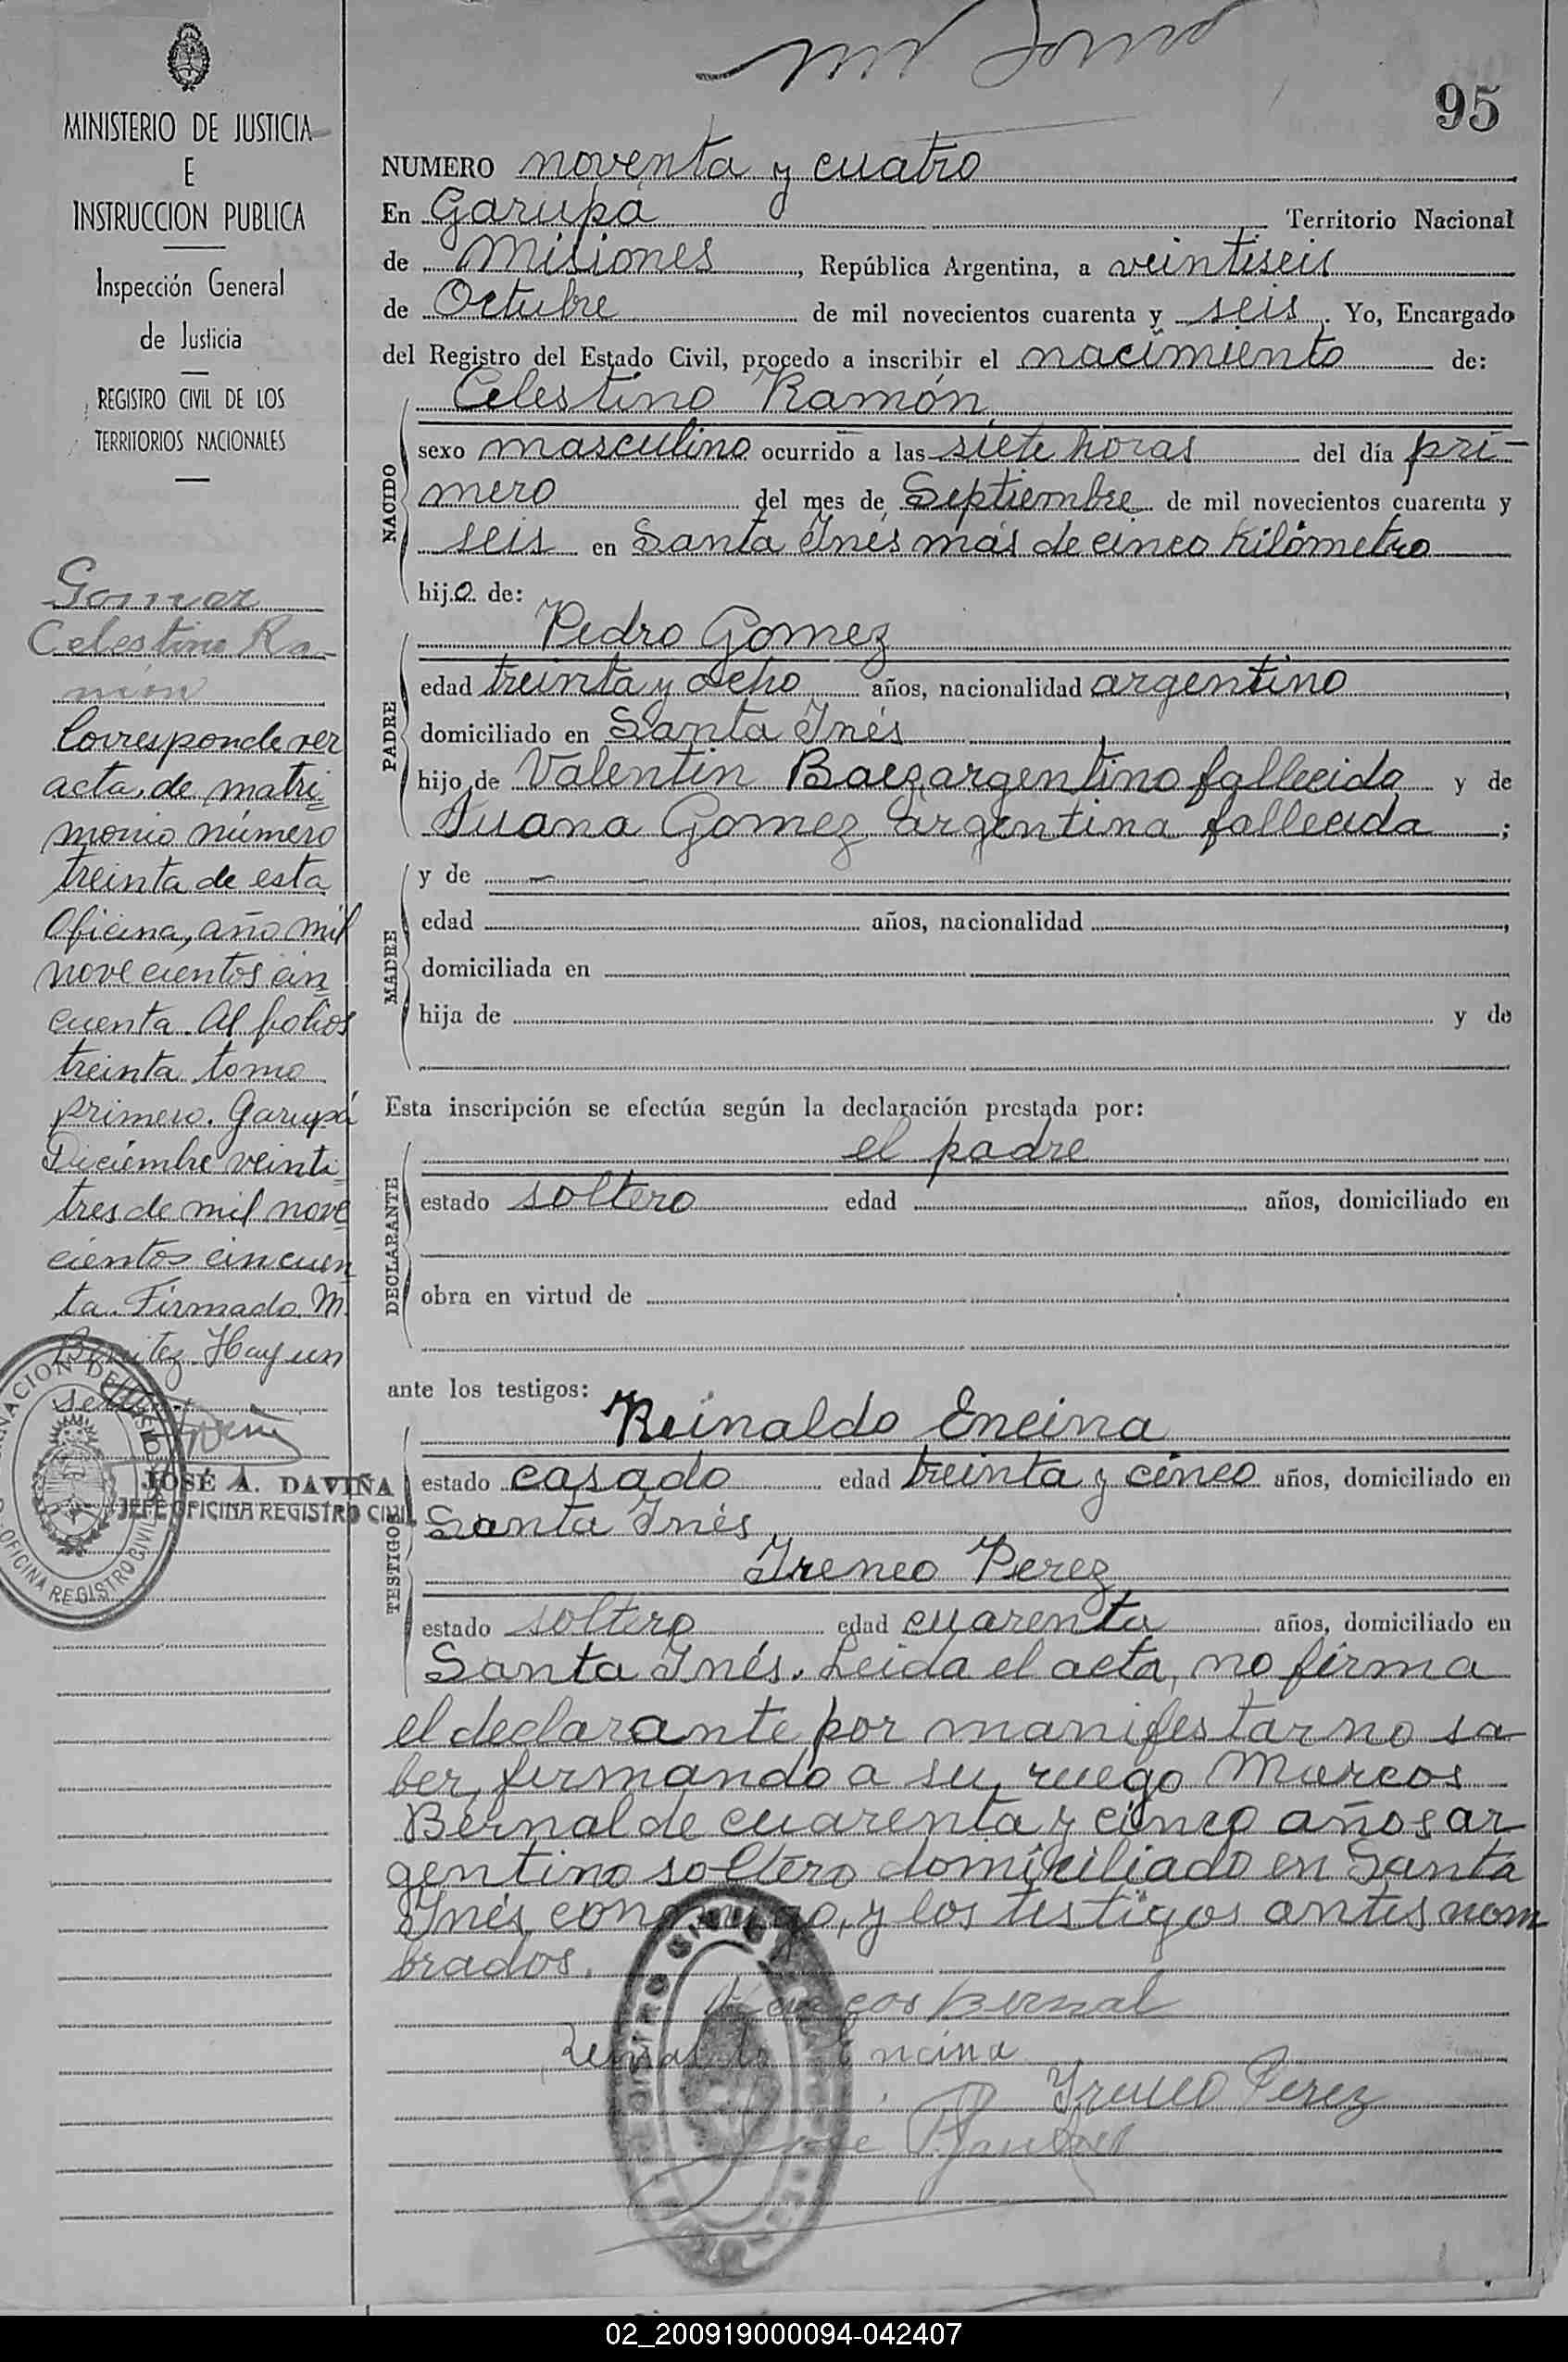 95
MINISTERIO DE JUSTICIA
E
INSTRUCCION PUBLICA
Inspección General
de Justicia
REGISTRO CIVIL DE LOS
TERRITORIOS NACIONALES
Gomez
Celestino Ra-
món
Corresponde ver
acta, de matri=
monio número
treinta de esta
Oficina, año mil
novecientos cin
cuenta. Al folios
treinta tomo
primero. Garupá
Diciembre veinti
tres de mil nove
cientos cincuen
ta. Firmado M.
Benitez. Hay un
sello.
JOSÉ A. DAVIÑA
JEFE OFICINA REGISTRO CIVIL
OFICINA REGISTRO CIVIL
NUMERO noventa y cuatro
En Garupá Territorio Nacional
de Misiones, República Argentina, a veintiseis
de Octubre de mil novecientos cuarenta y seis. Yo, Encargado
del Registro del Estado Civil, procedo a inscribir el nacimiento de:
Celestino Ramón
NACIDO
sexo masculino ocurrido a las siete horas del día pri-
mero del mes de Septiembre de mil novecientos cuarenta y
seis en Santa Inés más de cinco Kilómetro
hijo de:
Pedro Gomez
PADRE
edad treinta y ocho años, nacionalidad argentino,
domiciliado en Santa Inés
hijo de Valentin Baez argentino fallecido y de
Juana Gomez argentina fallecida;
MADRE
y de —
edad años, nacionalidad,
domiciliada en
hija de y de
Esta inscripción se efectúa según la declaración prestada por:
el padre
DECLARANTE
estado soltero edad años, domiciliado en
obra en virtud de
ante los testigos:
Reinaldo Encina
TESTIGOS
estado casado edad treinta y cinco años, domiciliado en
Santa Inés
Ireneo Perez
estado soltero edad cuarenta años, domiciliado en
Santa Inés. Leida el acta, no firma
el declarante por manifestar no sa
ber, firmando a su ruego Marcos
Bernal de cuarenta y cinco años ar
gentino soltero domiciliado en Santa
Inés conmigo, y los testigos antes nom
brados.
Marcos Bernal
Reinaldo Encina
Ireneo Perez
02_200919000094-042407